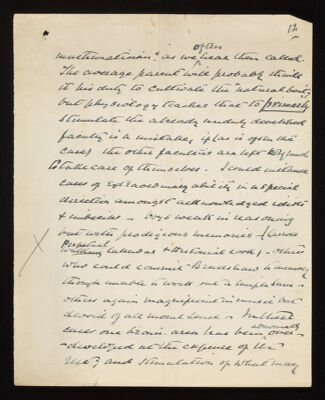 12
often
mathematician", as we hear them called.
The average parent will probably think
it his duty to cultivate the "natural bent,"
but physiology teaches that to primarily
stimulate the already unduly developed
faculty is a mistake, if, as is often the
case, the other faculties are left
to take care of themselves. I could instance
cases of extraordinary ability in a special
direction amongst acknowledged idiots
& imbeciles – boys weak in reasoning
but with prodigious memories –
Perpetual
calendars & historical works – others
who could commit Bradshaw to memory
though unable to work out a simple sum –
others again magnificent in music but
devoid of all moral sense – In these
abnormally
cases one brain area has been over-
-developed at the expense of the
rest, and stimulation of what may